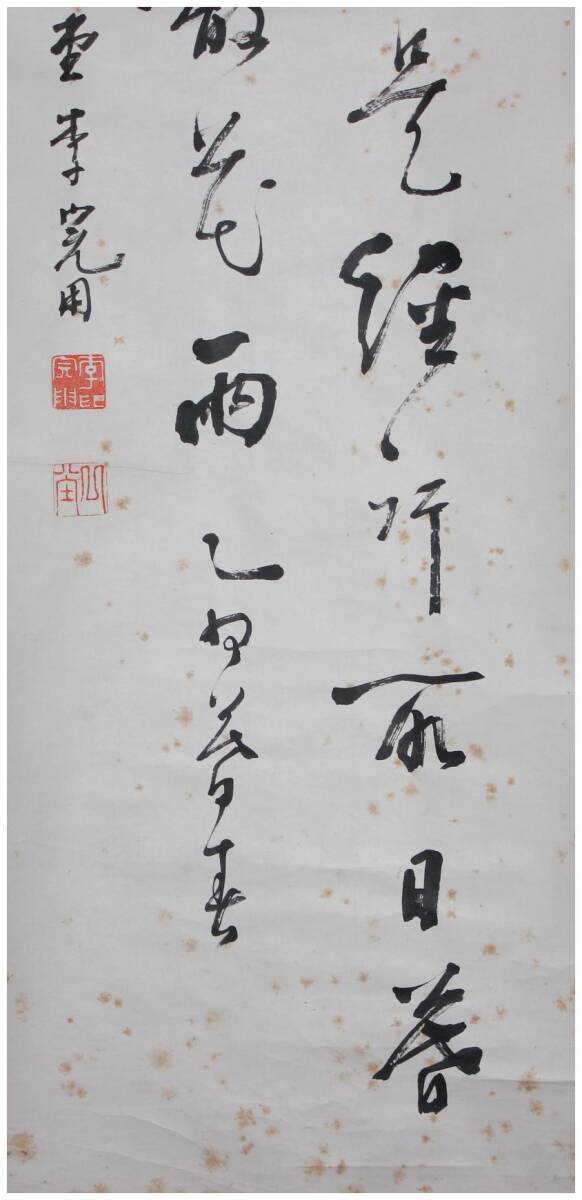 是經行處日暮
散花雨乙卯暮春
堂李完用
李完用印
堂